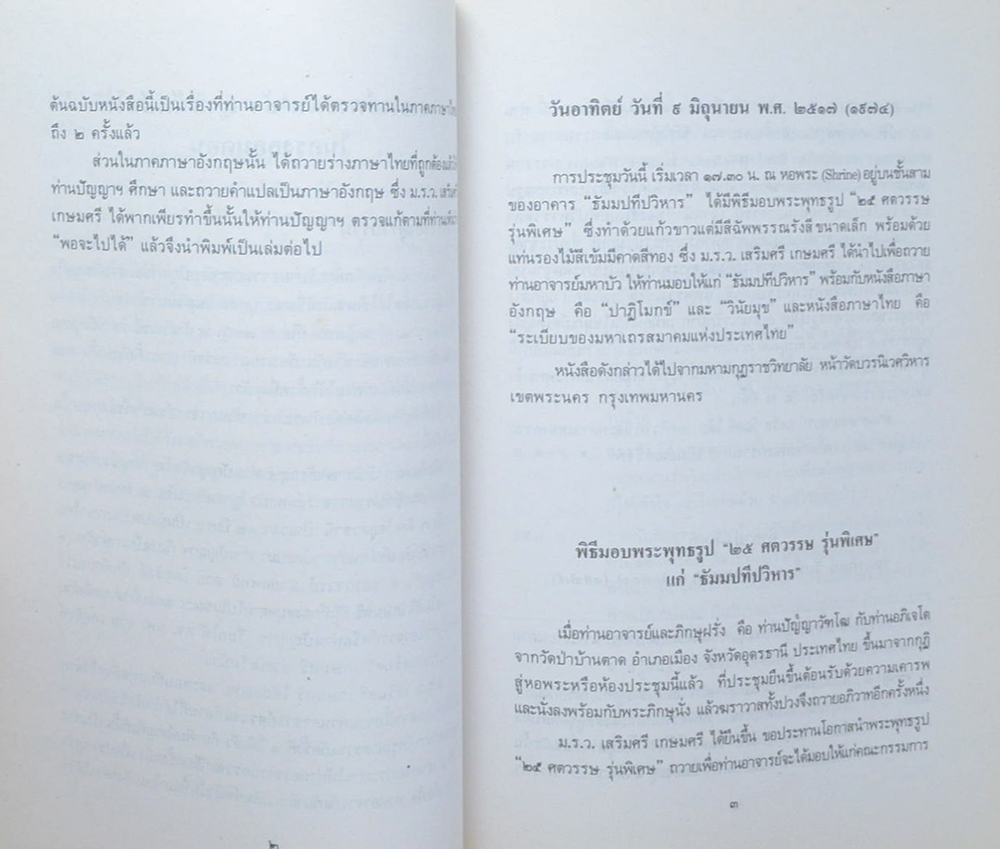 ต้นฉบับหนังสือนี้เป็นเรื่องที่ท่านอาจารย์ได้ตรวจทานในภาคภาษาไทย
ถึง ๒ ครั้งแล้ว
ส่วนในภาคภาษาอังกฤษนั้น ได้ถวายร่างภาษาไทยที่ถูกต้อง
ท่านปัญญาฯ ศึกษา และถวายคำแปลเป็นภาษาอังกฤษ ซึ่ง ม.ร.ว. เสริมศรี
เกษมศรี ได้พากเพียรทำขึ้นนั้นให้ท่านปัญญาฯ ตรวจแก้ตามที่ท่าน
“พอจะไปได้” แล้วจึงนำพิมพ์เป็นเล่มต่อไป
๒
วันอาทิตย์ วันที่ ๙ มิถุนายน พ.ศ. ๒๕๑๗ (๑๙๗๔)
การประชุมวันนี้ เริ่มเวลา ๑๗.๓๐ น. ณ หอพระ (Shrine) อยู่บนชั้นสาม
ของอาคาร “ธัมมปทีปวิหาร” ได้มีพิธีมอบพระพุทธรูป “๒๕ ศตวรรษ
รุ่นพิเศษ” ซึ่งทำด้วยแก้วขาวแต่มีสีฉัพพรรณรังสี ขนาดเล็ก พร้อมด้วย
แท่นรองไม้สีเข้มมีคาดสีทอง ซึ่ง ม.ร.ว. เสริมศรี เกษมศรี ได้นำไปเพื่อถวาย
ท่านอาจารย์มหาบัว ให้ท่านมอบให้แก่ “ธัมมปทีปวิหาร” พร้อมกับหนังสือภาษา
อังกฤษ คือ “ปาฏิโมกข์” และ “วินัยมุข” และหนังสือภาษาไทย คือ
“ระเบียบของมหาเถรสมาคมแห่งประเทศไทย”
หนังสือดังกล่าวได้ไปจากมหามกุฏราชวิทยาลัย หน้าวัดบวรนิเวศวิหาร
เขตพระนคร กรุงเทพมหานคร
พิธีมอบพระพุทธรูป “๒๕ ศตวรรษ รุ่นพิเศษ”
แก่ “ธัมมปทีปวิหาร”
เมื่อท่านอาจารย์และภิกษุฝรั่ง คือ ท่านปัญญาวัฑโฒ กับท่านอภิเจโต
จากวัดป่าบ้านตาด อำเภอเมือง จังหวัดอุดรธานี ประเทศไทย ขึ้นมาจากกุฏิ
สู่หอพระหรือห้องประชุมนี้แล้ว ที่ประชุมยืนขึ้นต้อนรับด้วยความเคารพ
และนั่งลงพร้อมกับพระภิกษุนั่ง แล้วฆราวาสทั้งปวงจึงถวายอภิวาทอีกครั้งหนึ่ง
ม.ร.ว. เสริมศรี เกษมศรี ได้ยืนขึ้น ขอประทานโอกาสนำพระพุทธรูป
“๒๕ ศตวรรษ รุ่นพิเศษ” ถวายเพื่อท่านอาจารย์จะได้มอบให้แก่คณะกรรมการ
๓